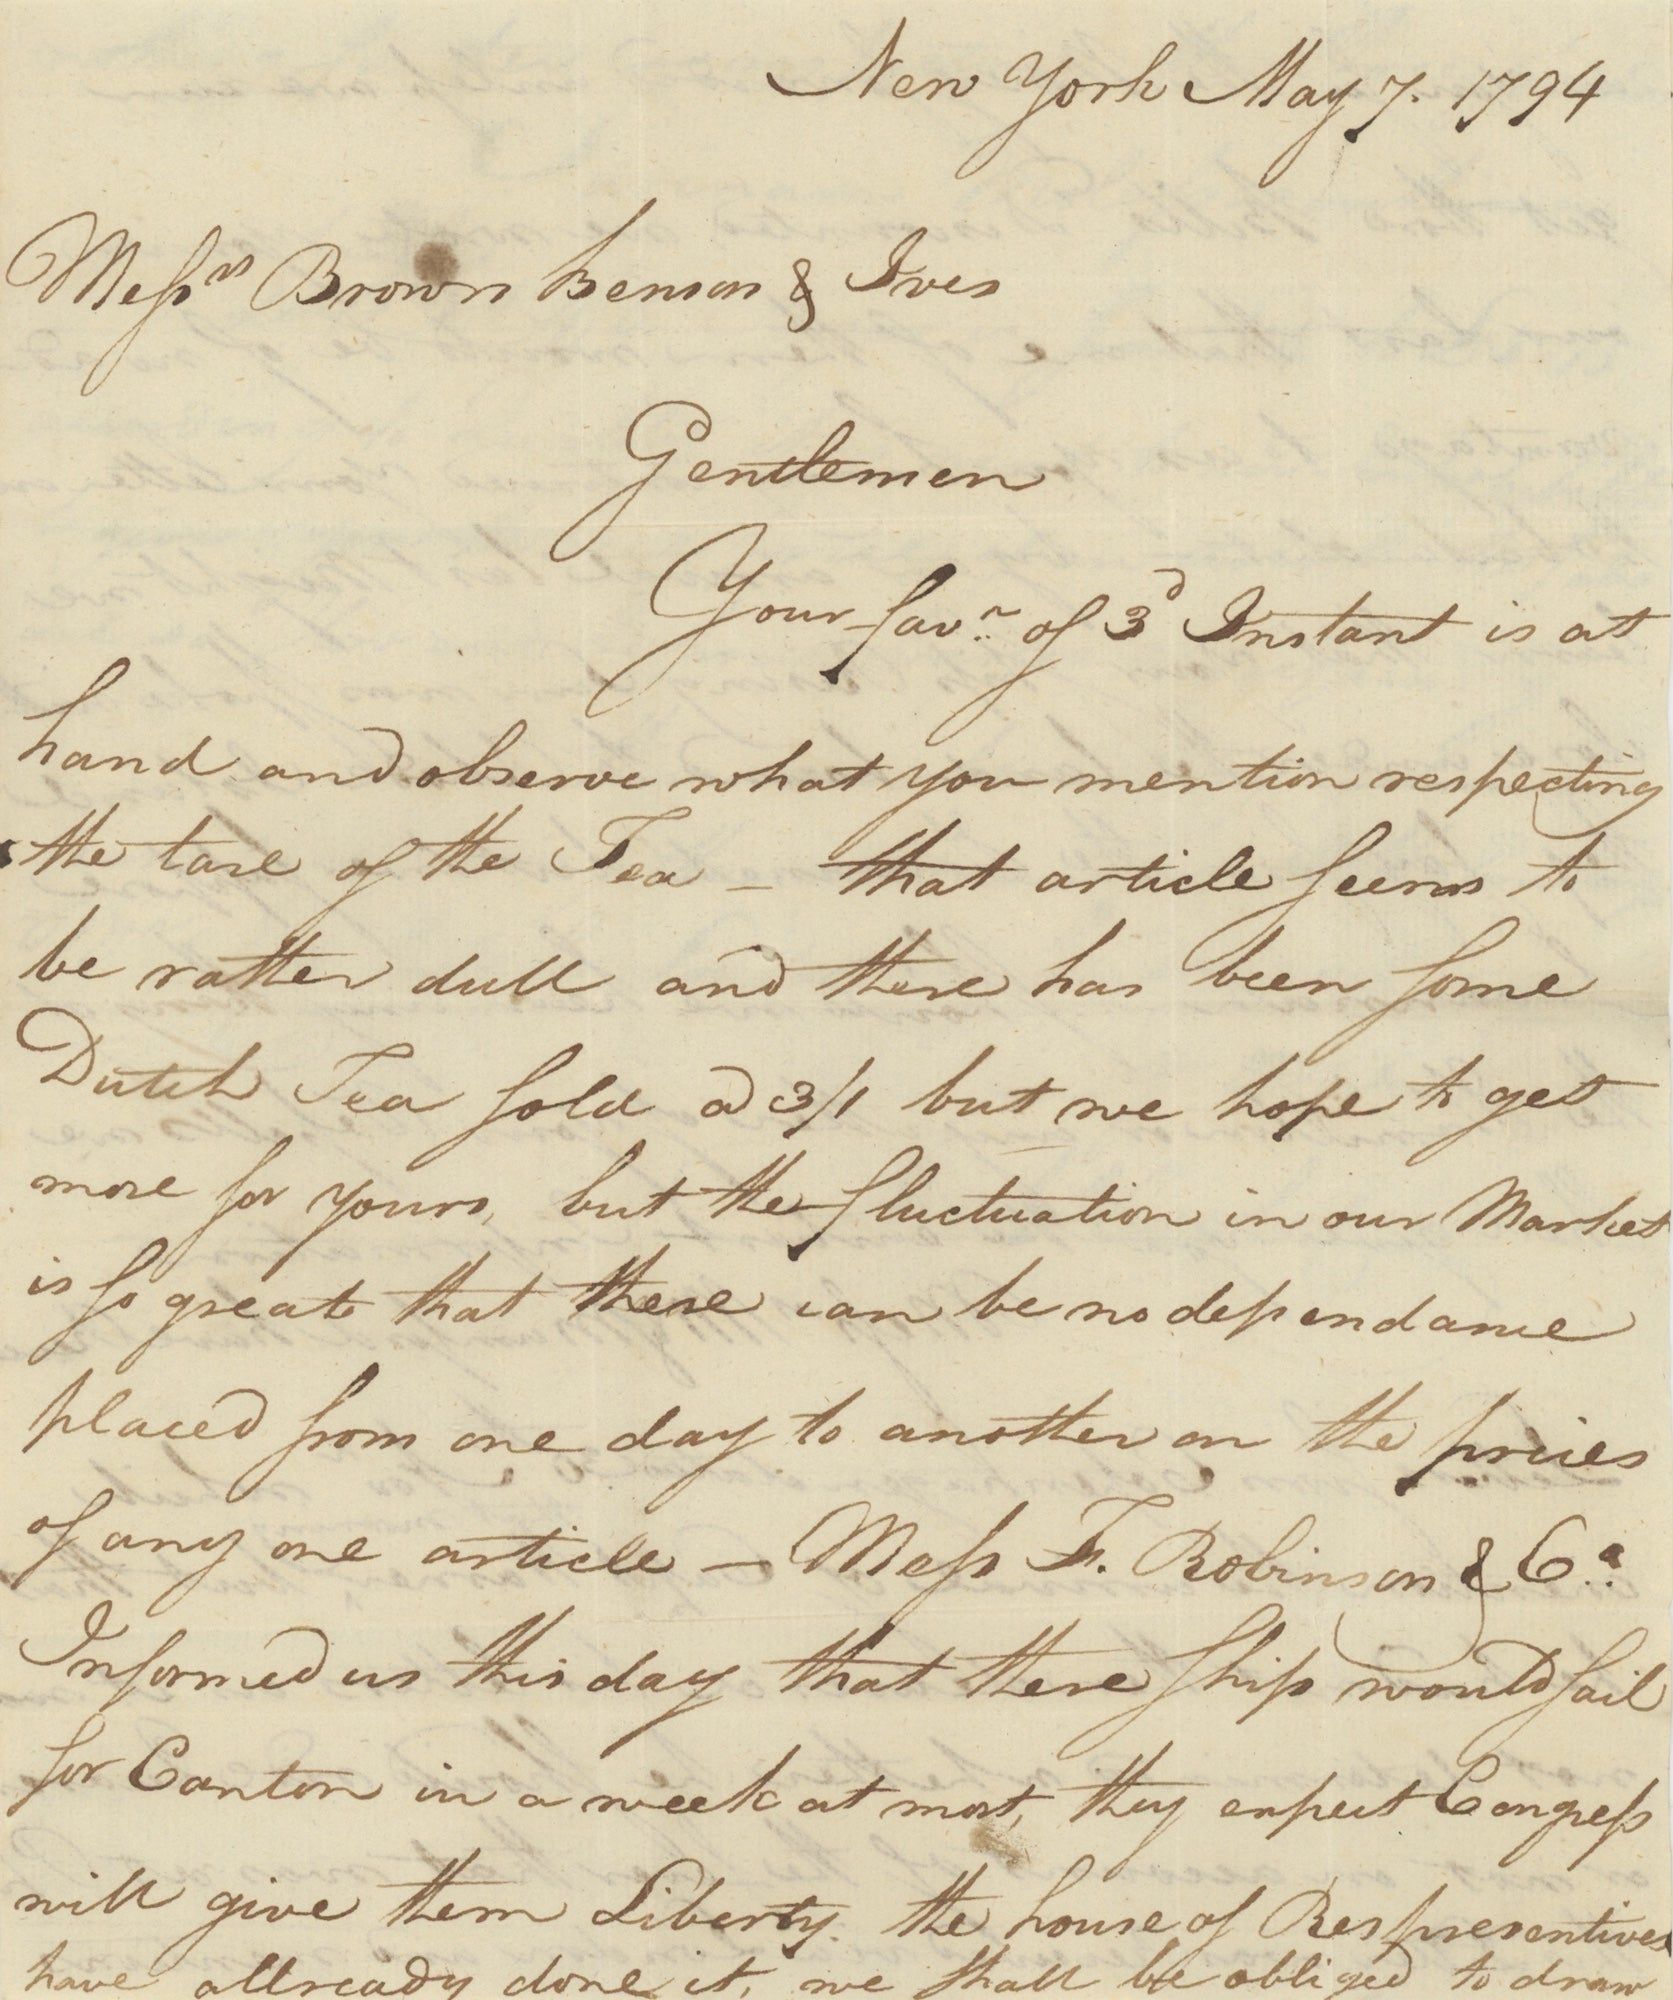 New York May 7. 1794
Messrs Brown Benson & Ives
Gentlemen
Your favr. of 3d Instant is at
hand and observe what you mention respecting
the tare of the Tea - that article seems to
be rather dull and there has been some
Dutch Tea sold a 3/1 but we hope to get
more for yours, but the fluctuation in our Market
is so great that there can be no dependance
placed from one day to another on the prices
of any one article - Mess F. Robinson & Co.
Informed us this day that there ship would sail
for Canton in a week at most, they expect Congress
will give them Liberty. the house of Respresentives
have allready done it, we shall be obliged to draw